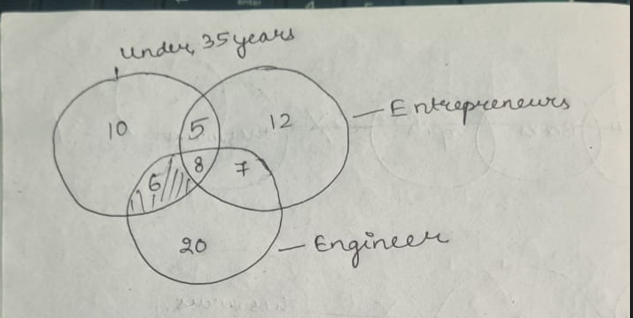 Under 35 years
Entrepreneurs
10 5 12
6 8 7
20
Engineer